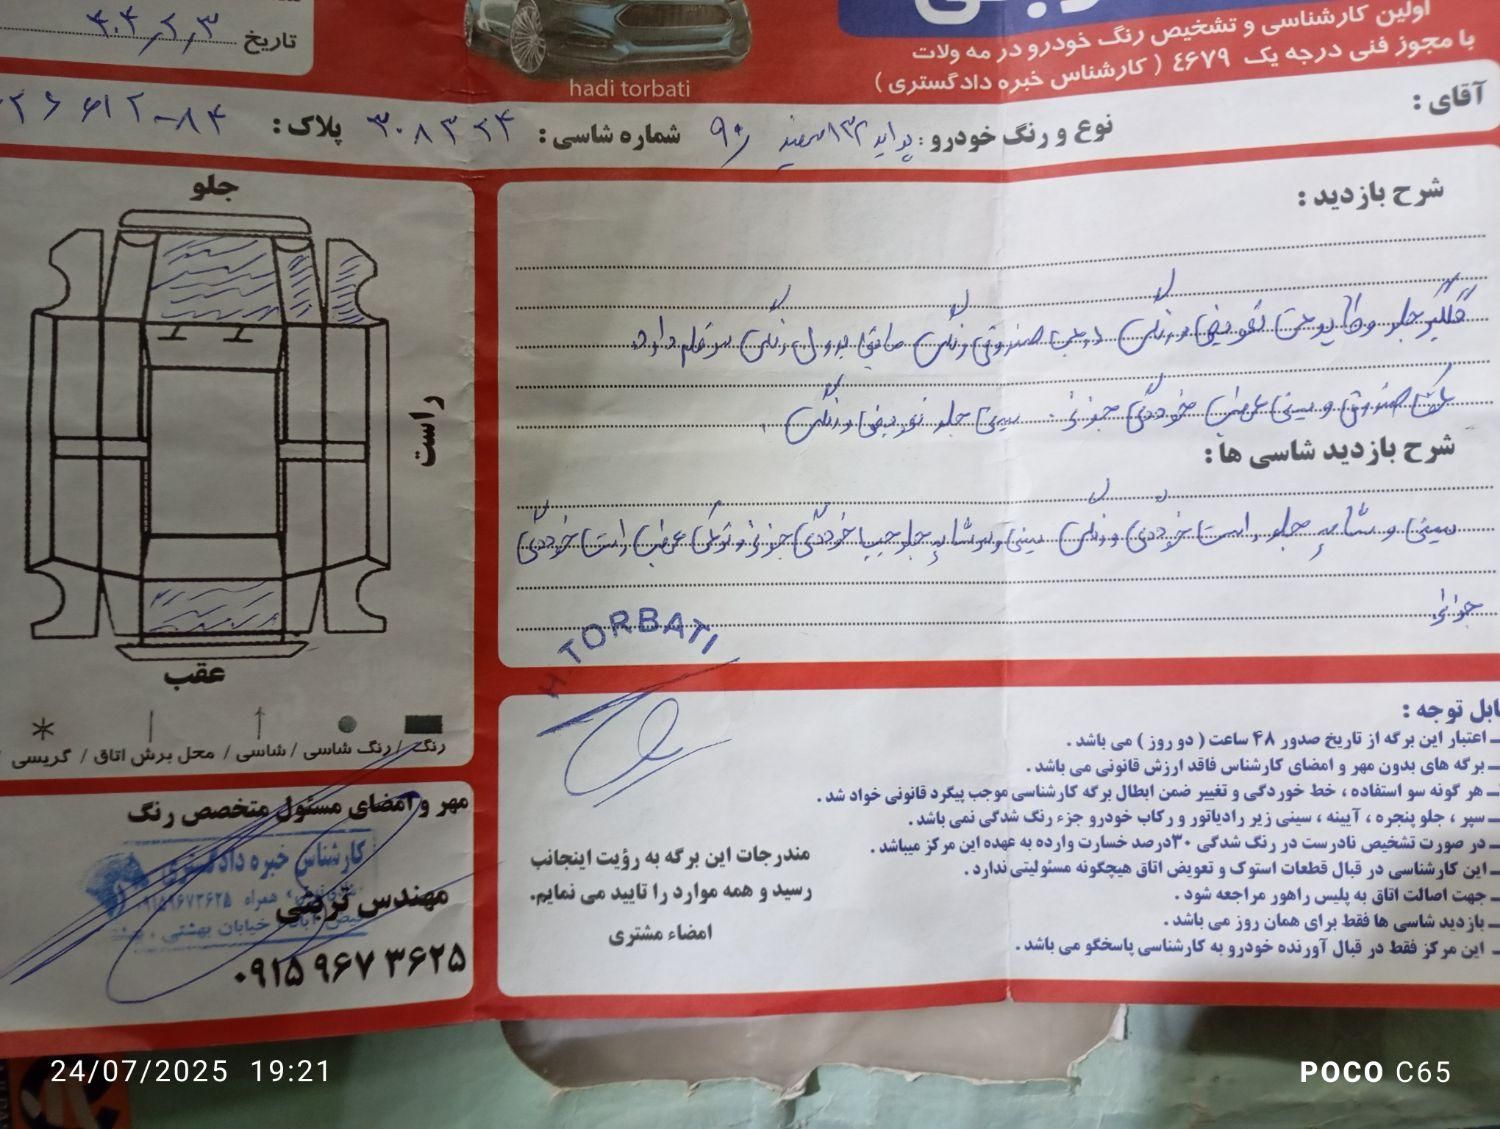 اولین کارشناسی و تشخیص رنگ خودرو در مه ولات
با مجوز فنی درجه یک ٤٦٧٩ ( کارشناس خبره دادگستری )
تاریخ ۴۰۴٫۲٫۳
hadi torbati
آقای :
نوع و رنگ خودرو : پراید ۱۳۲ سفید ۹۰
شماره شاسی : ۳۰۸۳۴۴
پلاک : ۲۶۶۱۲-۸۴
شرح بازدید :
گلگیر جلو و کاپوت تعویض و رنگ درب صندوق رنگ مابقی بدون رنگ سر قلم دارد
کف صندوق و سینی عقب خوردگی جزئی . سینی جلو تعویض و رنگ .
شرح بازدید شاسی ها :
سینی و شاسی جلو راست خوردگی و رنگ سینی و سرشاسی جلو چپ خوردگی جزئی و عقب راست خوردگی
جزئی
جلو
راست
عقب
رنگ / رنگ شاسی / شاسی / محل برش اتاق / گریسی /
مهر و امضای مسئول متخصص رنگ
کارشناس خبره دادگستری
همراه ۰۹۱۵۹۶۷۳۶۲۵
خیابان بهشتی
مهندس تربتی
۰۹۱۵ ۹۶۷ ۳۶۲۵
H. TORBATI
مندرجات این برگه به رؤیت اینجانب
رسید و همه موارد را تایید می نمایم.
امضاء مشتری
ابل توجه :
ـ اعتبار این برگه از تاریخ صدور ۴۸ ساعت ( دو روز ) می باشد .
ـ برگه های بدون مهر و امضای کارشناس فاقد ارزش قانونی می باشد .
ـ هر گونه سو استفاده ، خط خوردگی و تغییر ضمن ابطال برگه کارشناسی موجب پیگرد قانونی خواد شد .
ـ سپر ، جلو پنجره ، آیینه ، سینی زیر رادیاتور و رکاب خودرو جزء رنگ شدگی نمی باشد .
ـ در صورت تشخیص نادرست در رنگ شدگی ۳۰درصد خسارت وارده به عهده این مرکز میباشد .
ـ این کارشناسی در قبال قطعات استوک و تعویض اتاق هیچگونه مسئولیتی ندارد .
ـ جهت اصالت اتاق به پلیس راهور مراجعه شود .
ـ بازدید شاسی ها فقط برای همان روز می باشد .
ـ این مرکز فقط در قبال آورنده خودرو به کارشناسی پاسخگو می باشد .
24/07/2025 19:21
POCO C65